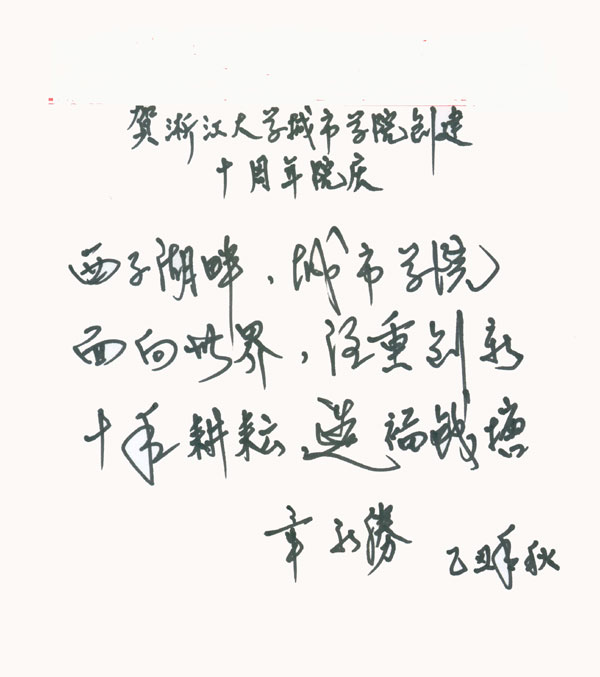 贺浙江大学城市学院创建
十周年院庆
西子湖畔,城市学院
面向世界,注重创新
十年耕耘,造福钱塘
章新勝 己丑年秋